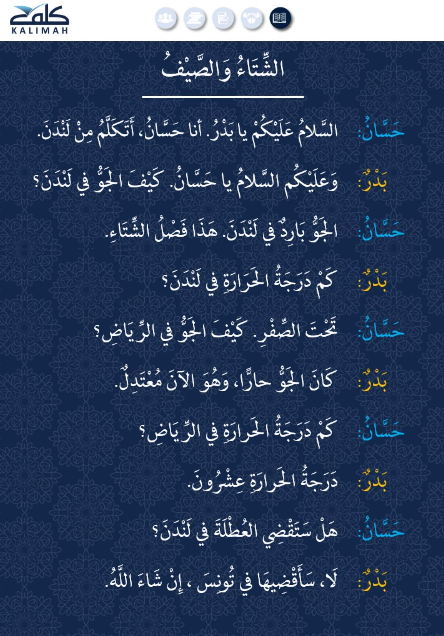 كلمة
KALIMAH
الشِّتَاءُ وَالصَّيْفُ
حَسَّانُ: السَّلامُ عَلَيْكُمْ يا بَدْرُ. أنا حَسَّانُ، أَتَكَلَّمُ مِنْ لَنْدَنَ.
بَدْرٌ: وَعَلَيْكُم السَّلامُ يا حَسَّانُ. كَيْفَ الجَوُّ في لَنْدَنَ؟
حَسَّانُ: الجَوُّ بَارِدٌ في لَنْدَنَ. هَذَا فَصْلُ الشِّتَاءِ.
بَدْرٌ: كَمْ دَرَجَةُ الحَرَارَةِ في لَنْدَنَ؟
حَسَّانُ: تَحْتَ الصِّفْرِ. كَيْفَ الجَوُّ في الرِّيَاضِ؟
بَدْرٌ: كَانَ الجَوُّ حارًّا، وَهُوَ الآنَ مُعْتَدِلٌ.
حَسَّانُ: كَمْ دَرَجَةُ الحَرارَةِ في الرِّيَاضِ؟
بَدْرٌ: دَرَجَةُ الحَرارَةِ عِشْرُونَ.
حَسَّانُ: هَلْ سَتَقْضِي العُطْلَةَ في لَنْدَنَ؟
بَدْرٌ: لَا، سَأَقْضِيهَا في تُونِسَ ، إِنْ شَاءَ اللَّهُ.